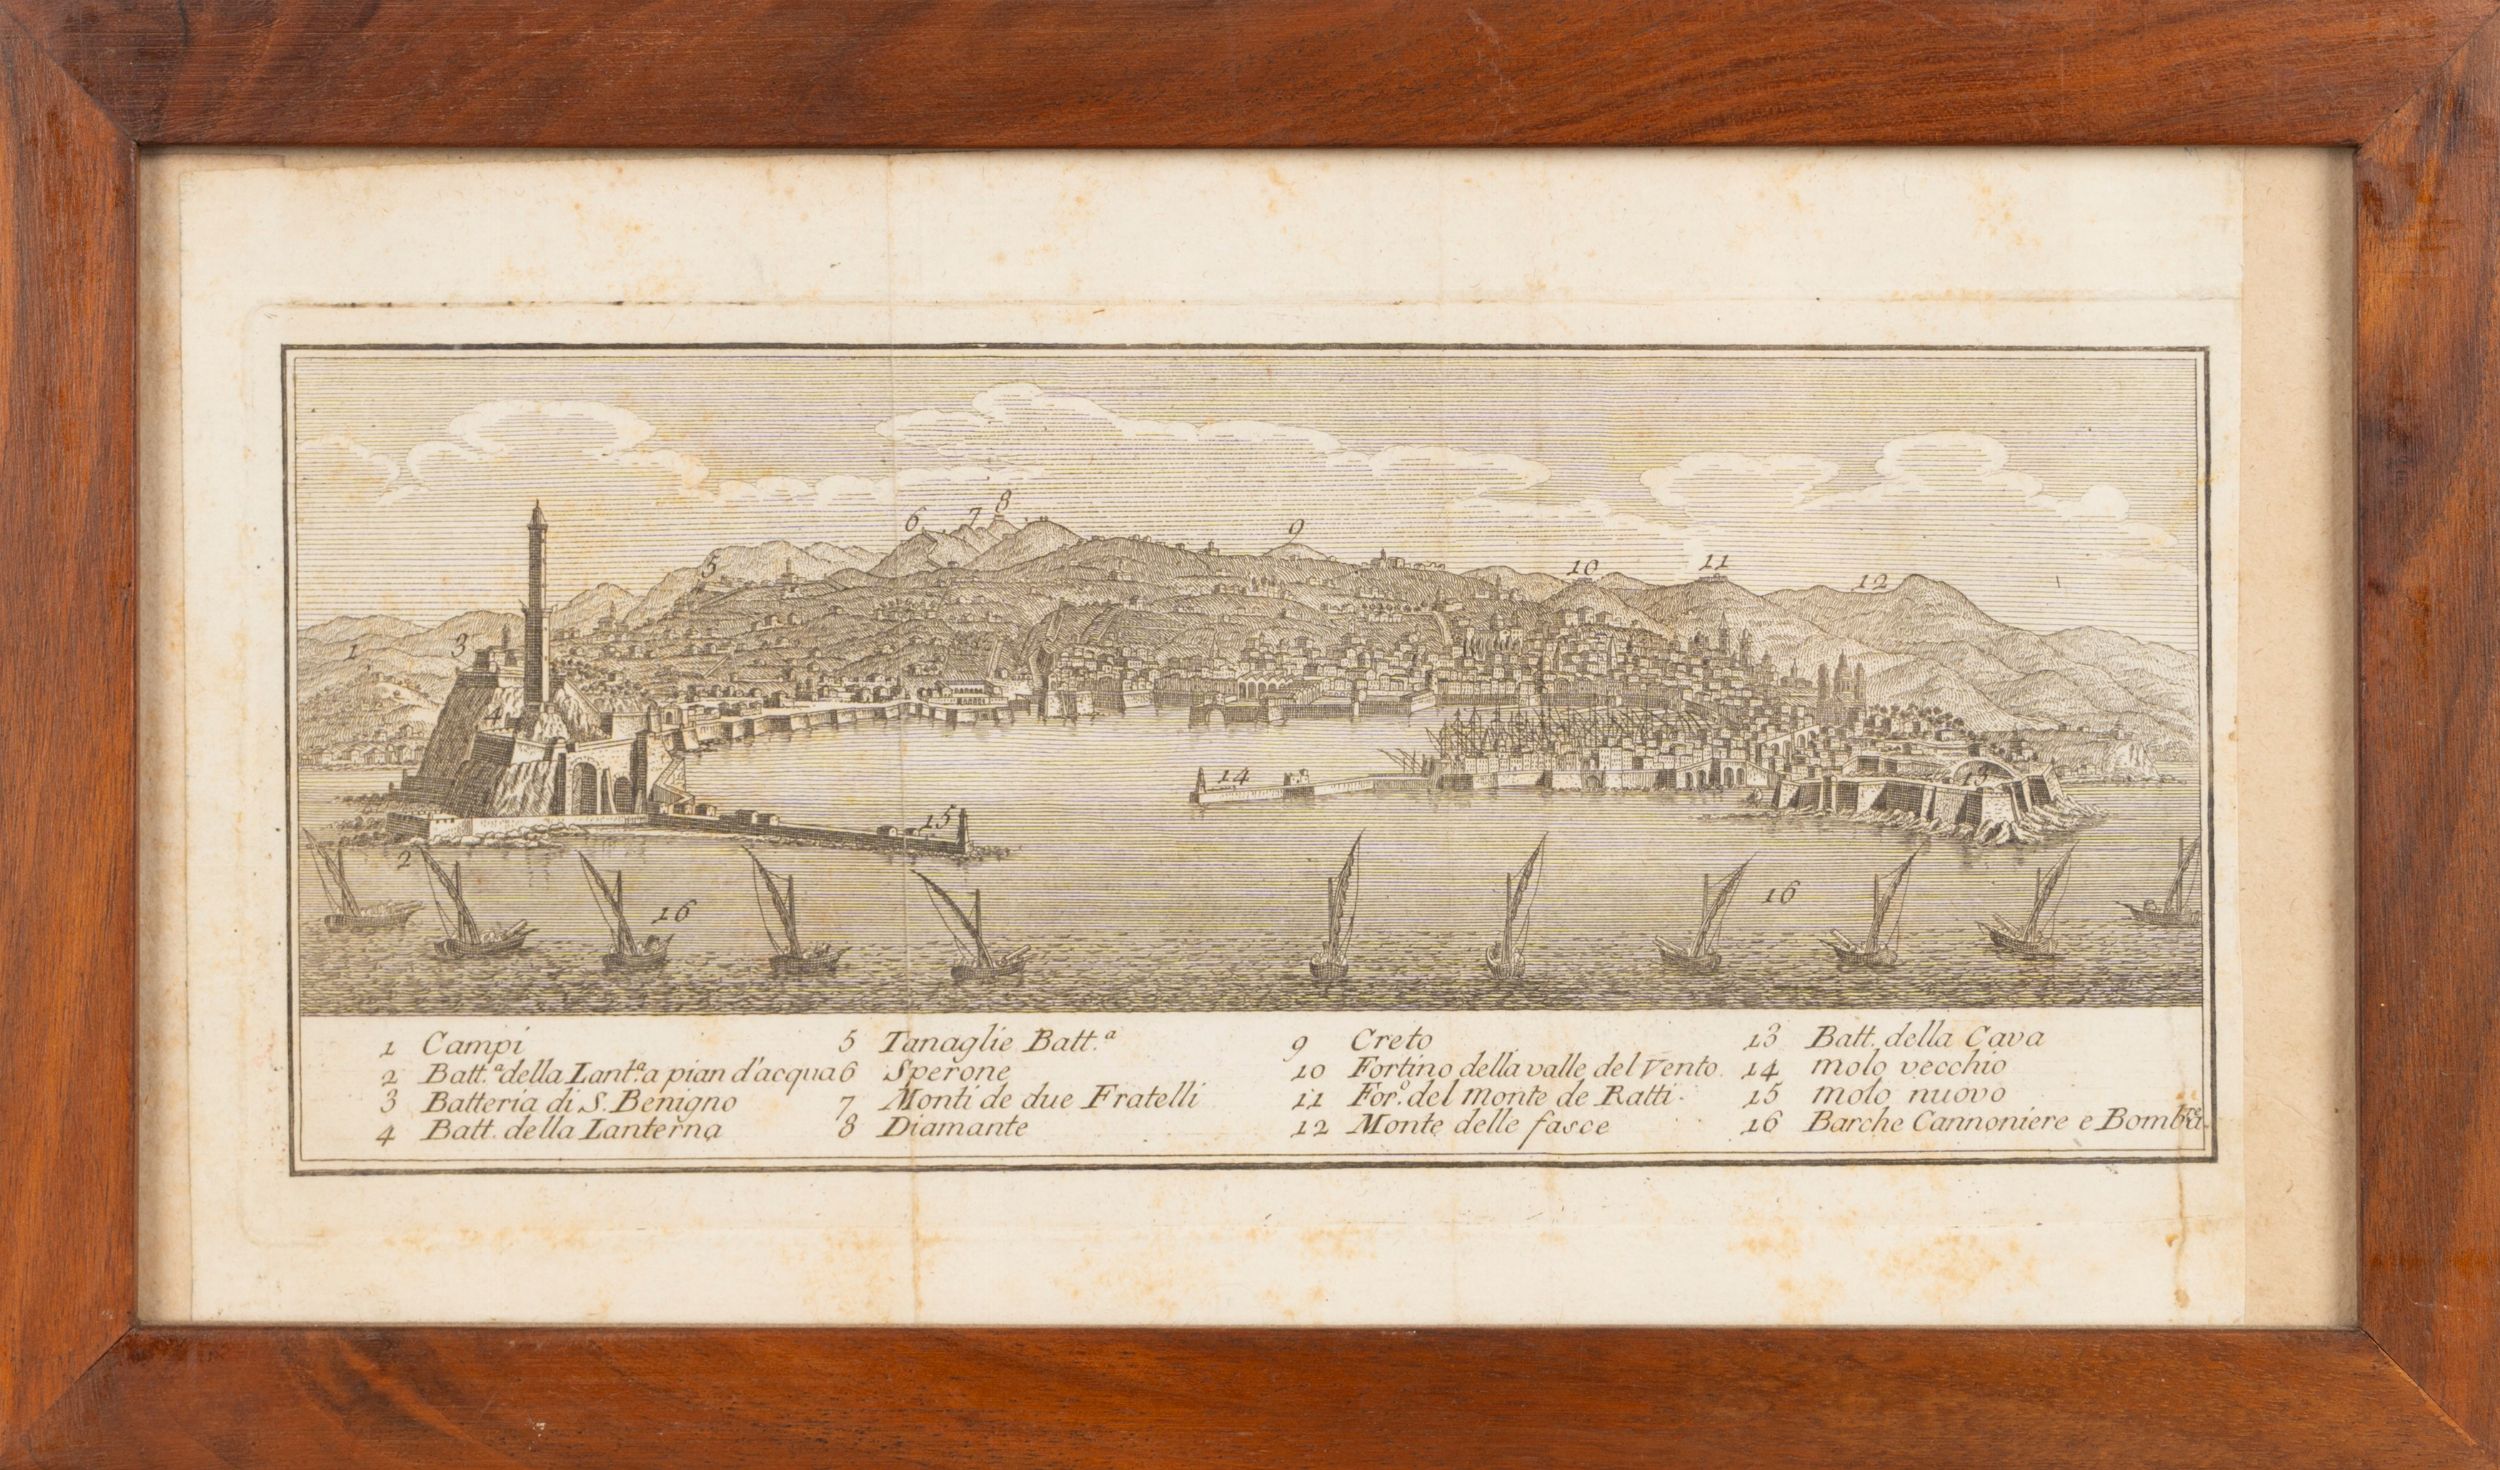 6 7 8
5 9
10 11 12
1 3
4
14 13
15
2
16 16
1 Campi
2 Batt.ª della Lant.ª a pian d'acqua
3 Batteria di S. Benigno
4 Batt. della Lanterna
5 Tanaglie Batt.ª
6 Sperone
7 Monti de due Fratelli
8 Diamante
9 Creto
10 Fortino della valle del Vento
11 For.º del monte de Ratti.
12 Monte delle fasce
13 Batt. della Cava
14 molo vecchio
15 molo nuovo
16 Barche Cannoniere e Bombre.